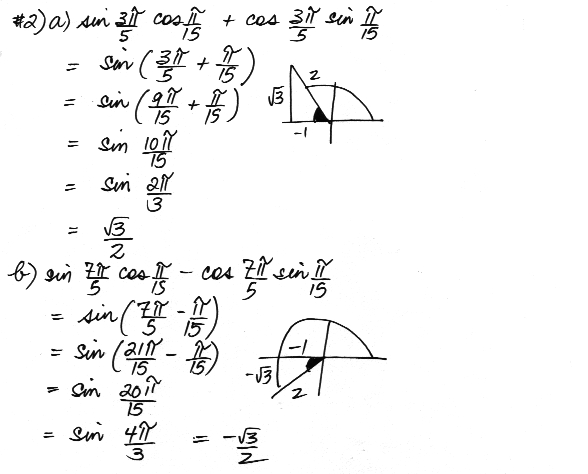 #2) a) sin 3π/5 cos π/15 + cos 3π/5 sin π/15
= sin (3π/5 + π/15)
= sin (9π/15 + π/15)
= sin 10π/15
= sin 2π/3
= √3/2
√3 2
-1
b) sin 7π/5 cos π/15 - cos 7π/5 sin π/15
= sin (7π/5 - π/15)
= sin (21π/15 - π/15)
= sin 20π/15
= sin 4π/3 = -√3/2
-1
-√3 2